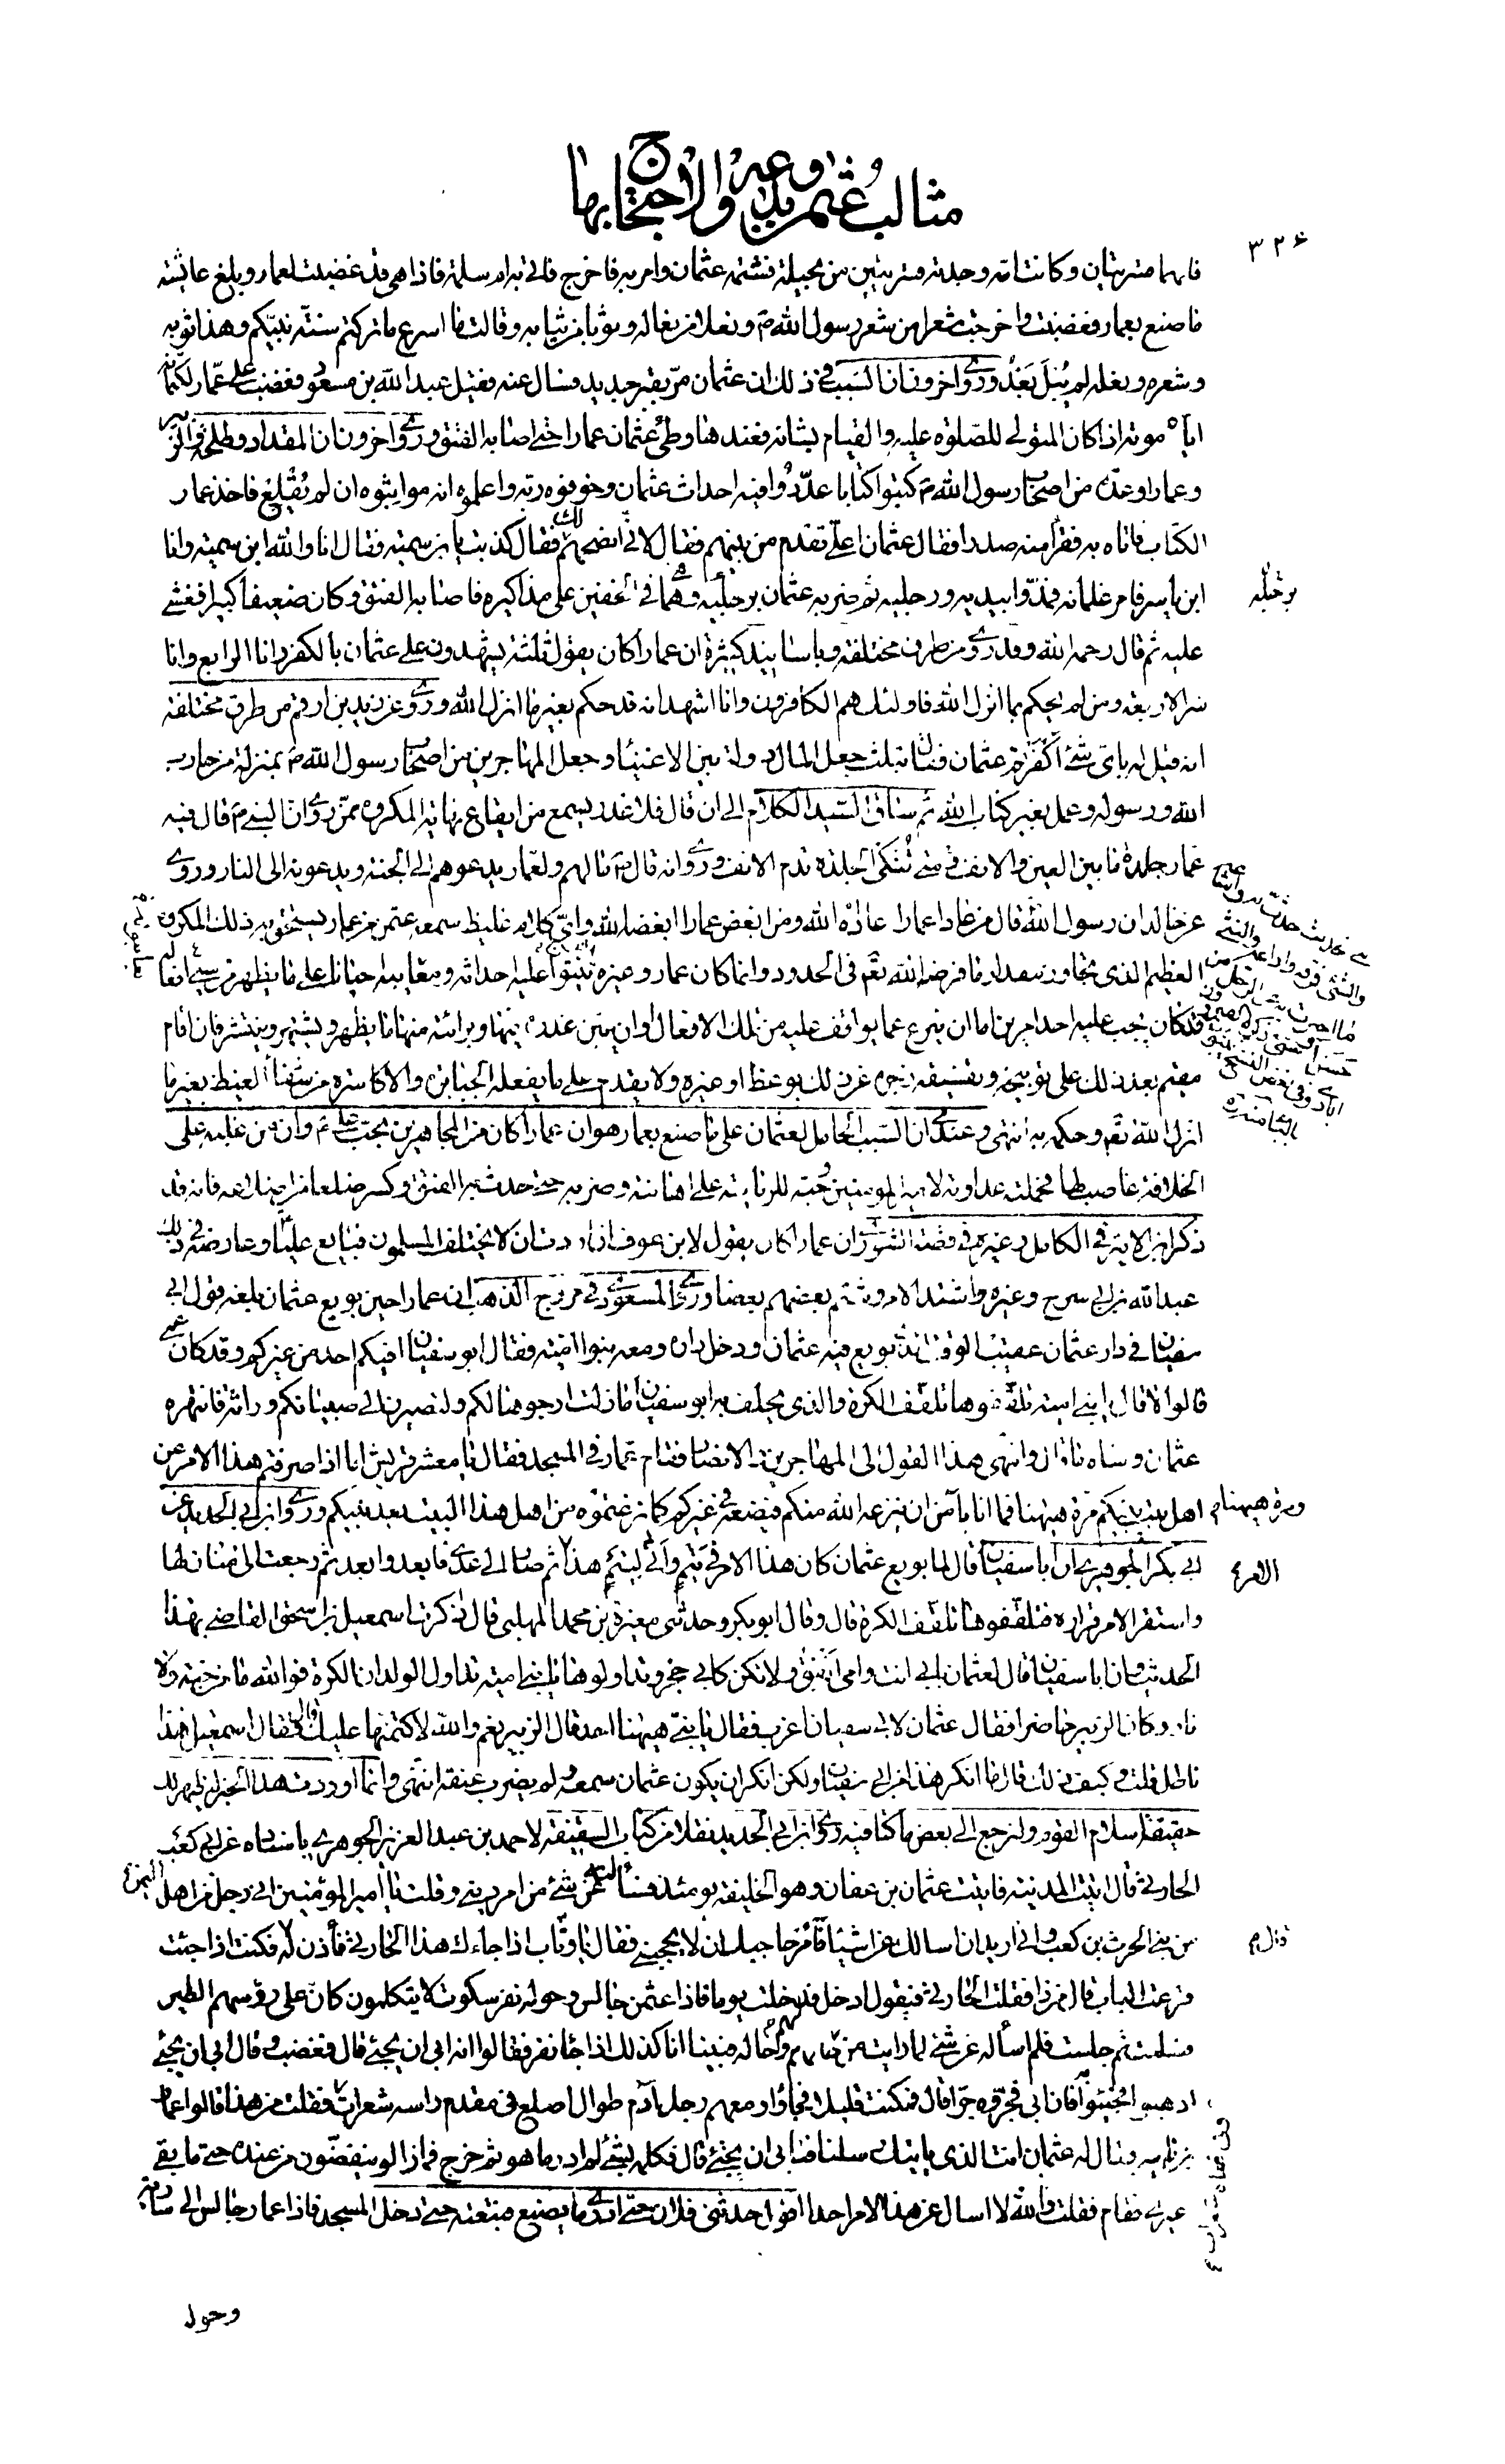 مثالب عثمن وبدعه والاحتجاج بها
٣٢٤
فانهما منزيتان وكانت امه وجدته منزيتين من بجيلة فشتمه عثمان وامر به فاخرج فاتي به ام سلمة فاذا هي قد غضبت لعمار وبلغ عائشة
ما صنع بعمار فغضبت واخرجت شعرا من شعر رسول الله ص ونعلا من نعاله وثوبا من ثيابه وقالت ما اسرع ما تركتم سنة نبيكم وهذا ثوبه
وشعره ونعله لم يبل بعد وروى اخرون ان السبب في ذلك ان عثمان مر بقبر جديد فسال عنه فقيل عبد الله بن مسعود فغضب على عمار لكتمانه
اياه موته اذ كان المتولي للصلوة عليه والقيام بشانه فعندها وطئ عثمان عمارا حتى اصابه الفتق وروى اخرون ان المقداد وطلحة والزبير
وعمارا وعدة من اصحاب رسول الله ص كتبوا كتابا عددوا فيه احداث عثمان وخوفوه ربه واعلموه انه مواثبوه ان لم يقلع فاخذ عمار
الكتاب فاتاه به فقرأ منه صدرا فقال عثمان اعلي تقدم من بينهم فقال لاني انصحهم لك فقال كذبت يا بن سمية فقال انا والله ابن سمية وانا
ابن ياسر فامر غلمانه فمدوا بيديه ورجليه ثم ضربه عثمان برجليه وهما في الخفين على مذاكيره فاصابه الفتق وكان ضعيفا كبيرا فغشي
برجليه
عليه ثم قال رحمه الله وقد روي من طرق مختلفة وباسانيد كثيرة ان عمارا كان يقول ثلثة يشهدون على عثمان بالكفر وانا الرابع وانا
شر الاربعة ومن لم يحكم بما انزل الله فاولئك هم الكافرون وانا اشهد انه قد حكم بغير ما انزل الله وروى عن زيد بن ارقم من طرق مختلفة
انه قيل له باي شئ اكفرتم عثمان فقال بثلث جعل المال دولة بين الاغنيا وجعل المهاجرين من اصحاب رسول الله ص بمنزلة من حارب
الله ورسوله وعمل بغير كتاب الله ثم ساق السيد الكلام الى ان قال فلا عذر يسمع من ايقاع نهاية المكروه بمن روي ان النبي ص قال فيه
عمار جلدة ما بين العين والانف فمتى تنكأ الجلدة تدم الانف وروى انه قال ص ما لهم ولعمار يدعوهم الى الجنة ويدعونه الى النار وروى
عن خالد ان رسول الله ص قال من عادا عمارا عاداه الله ومن ابغض عمارا ابغضه الله واي كلام غليظ سمعه عثمن من عمار يستحق به ذلك المكروه
العظيم الذي يتجاوز مقدار ما فرضه الله تع في الحدود وانما كان عمار وغيره يثبتوا عليه احداثه ومعايبه احيانا على ما يظهر من سيئ افعاله
فقد كان يجب عليه احد امرين اما ان ينزع عما يواقف عليه من تلك الافعال او ان يبين عذره فيها وبرائته منها ما يظهر ويشتهر وينتشر فان اقام
مقيم بعد ذلك على توبيخه وتفسيقه زجره عن ذلك بوعظ او غيره ولا يقدم على ما يفعله الجبابرة والاكاسرة من شفاء الغيظ بغير ما
انزل الله تع وحكم به انتهى وعندي ان السبب الحامل لعثمان على ما صنع بعمار هو ان عمارا كان من المجاهرين بحب علي ع وان من غلبه على
الخلافة غاصب لها فحملته عداوته لامير المومنين وحبه للرياسة على اهانته وضربه حتى حدث به الفتق وكسر ضلعا من اضلاعه فانه قد
ذكر ابن الاثير في الكامل وغيره في قصة الشورى ان عمارا كان يقول لابن عوف ان اردت ان لا يختلف المسلمون فبايع عليا وعارضه في ذلك
عبد الله بن ابي سرح وغيره واشتد الامر وشتم بعضهم بعضا وروى المسعودي في مروج الذهب ان عمارا حين بويع عثمان بلغه قول ابي
سفيان في دار عثمان عقيب الوقت الذي بويع فيه عثمان ودخل داره ومعه بنوا امية فقال ابو سفيان افيكم احد من غيركم وقد كان عمي
قالوا لا قال يا بني امية تلقفوها تلقف الكرة والذي يحلف به ابو سفيان ما زلت ارجوها لكم ولتصيرن الى صبيانكم وراثة فانتهره
عثمان وساءه ما قال وانتهى هذا القول الى المهاجرين والانصار فقام عمار في المسجد فقال يا معشر قريش اما اذا صرفتم هذا الامر عن
اهل بيت نبيكم مرة هيهنا فما انا بآمن ان ينزعه الله منكم فيضعه في غيركم كما نزعتموه من اهل هذا البيت بعد نبيكم وروى ابن ابي الحديد عن
ومرة هيهنا م
ابي بكر الجوهري ان ابا سفيان قال لما بويع عثمان كان هذا الامر في تيم واني لتيم هذا الامر ثم صار الى عدي فابعد وابعد ثم رجعت الى منازلها
واستقر الامر قراره فتلقفوها تلقف الكرة قال وقال ابو بكر وحدثني مغيرة بن محمد المهلبي قال ذكرت اسمعيل بن اسحق القاضي بهذا
الحديث وان ابا سفيان قال لعثمان بابي انت وامي انفق ولا تكن كابي حجر وتداولوها يا بني امية تداول الولدان الكرة فوالله ما من جنة ولا
نار وكان الزبير حاضرا فقال عثمان لابي سفيان اعزب فقال يا بني هيهنا احد قال الزبير نعم والله لا كتمتها عليك قال فقال اسمعيل هذا
باطل قلت وكيف ذلك قال ما انكر هذا من ابي سفيان ولكن انكر ان يكون عثمان سمعه ولم يضرب عنقه انتهى وانما اوردت هذا الخبر ليظهر لك
حقيقة اسلام القوم ولنرجع الى بعض ما كنا فيه روى ابن ابي الحديد نقلا من كتاب السقيفة لاحمد بن عبد العزيز الجوهري باسناده عن ابي كعب
الحارثي قال اتيت المدينة فاتيت عثمان بن عفان وهو الخليفة يومئذ فسألته عن شئ من امر ديني وقلت يا امير المؤمنين اني رجل من اهل اليمن
من بني الحرث بن كعب واني اريد ان اسالك عن اشياء فأمر حاجبك ان لا يحجبني فقال يا وثاب اذا جاءك هذا الحارثي فأذن له فكنت اذا جئت
قرعت الباب قال من ذا فقلت الحارثي فيقول ادخل فدخلت يوما فاذا عثمن جالس وحوله نفر سكوت لا يتكلمون كان على رؤسهم الطير
فسلمت ثم جلست فلم اسأله عن شئ لما رايت من حالهم وحاله فبينا انا كذلك اذ جاء نفر فقالوا انه ابى ان يجئ قال فغضب وقال ابى ان يجئ
اذهبوا فجيئوا به فان ابى فجروه جرا قال فمكثت قليلا فجاؤا ومعهم رجل آدم طوال اصلع في مقدم راسه شعرات فقلت من هذا قالوا عمار
بن ياسر فقال له عثمان انت الذي ياتيك رسلنا فتابى ان تجئ قال فكلمه بشئ لم ادر ما هو ثم خرج فما زالوا ينفضون من عنده حتى ما بقي
غيري فقام فقلت والله لا اسال عن هذا الامر احدا اقول حدثني فلان حتى ادري ما يصنع فتبعته حتى دخل المسجد فاذا عمار جالس الى سارية
وحول